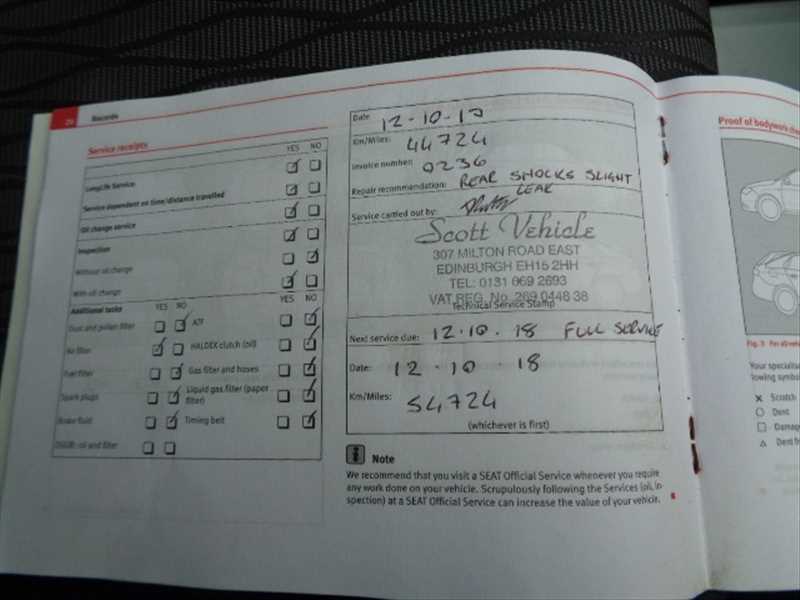 Records
Service receipts
YES NO
LongLife Service
Service dependent on time/distance travelled
Oil change service
Inspection
Without oil change
With oil change
Additional tasks YES NO YES NO
Dust and pollen filter ATF
Air filter HALDEX clutch (oil)
Fuel filter Gas filter and hoses
Spark plugs Liquid gas filter (paper
filter)
Brake fluid Timing belt
oil and filter
Date 12-10-17
Km/Miles: 44724
Invoice number: 0236
Repair recommendation: REAR SHOCKS SLIGHT
LEAK
Service carried out by:
Scott Vehicle
307 MILTON ROAD EAST
EDINBURGH EH15 2HH
TEL: 0131 669 2693
VAT REG. No. 269 0448 38
Technical Service Stamp
Next service due: 12.10.18 FULL SERVICE
Date: 12.10.18
Km/Miles: 54724
(whichever is first)
i Note
We recommend that you visit a SEAT Official Service whenever you require
any work done on your vehicle. Scrupulously following the Services (oil, in
spection) at a SEAT Official Service can increase the value of your vehicle.
Proof of bodywork
Fig. 3 For all
Your specialised
lowing
Scratch
Dent
Dent